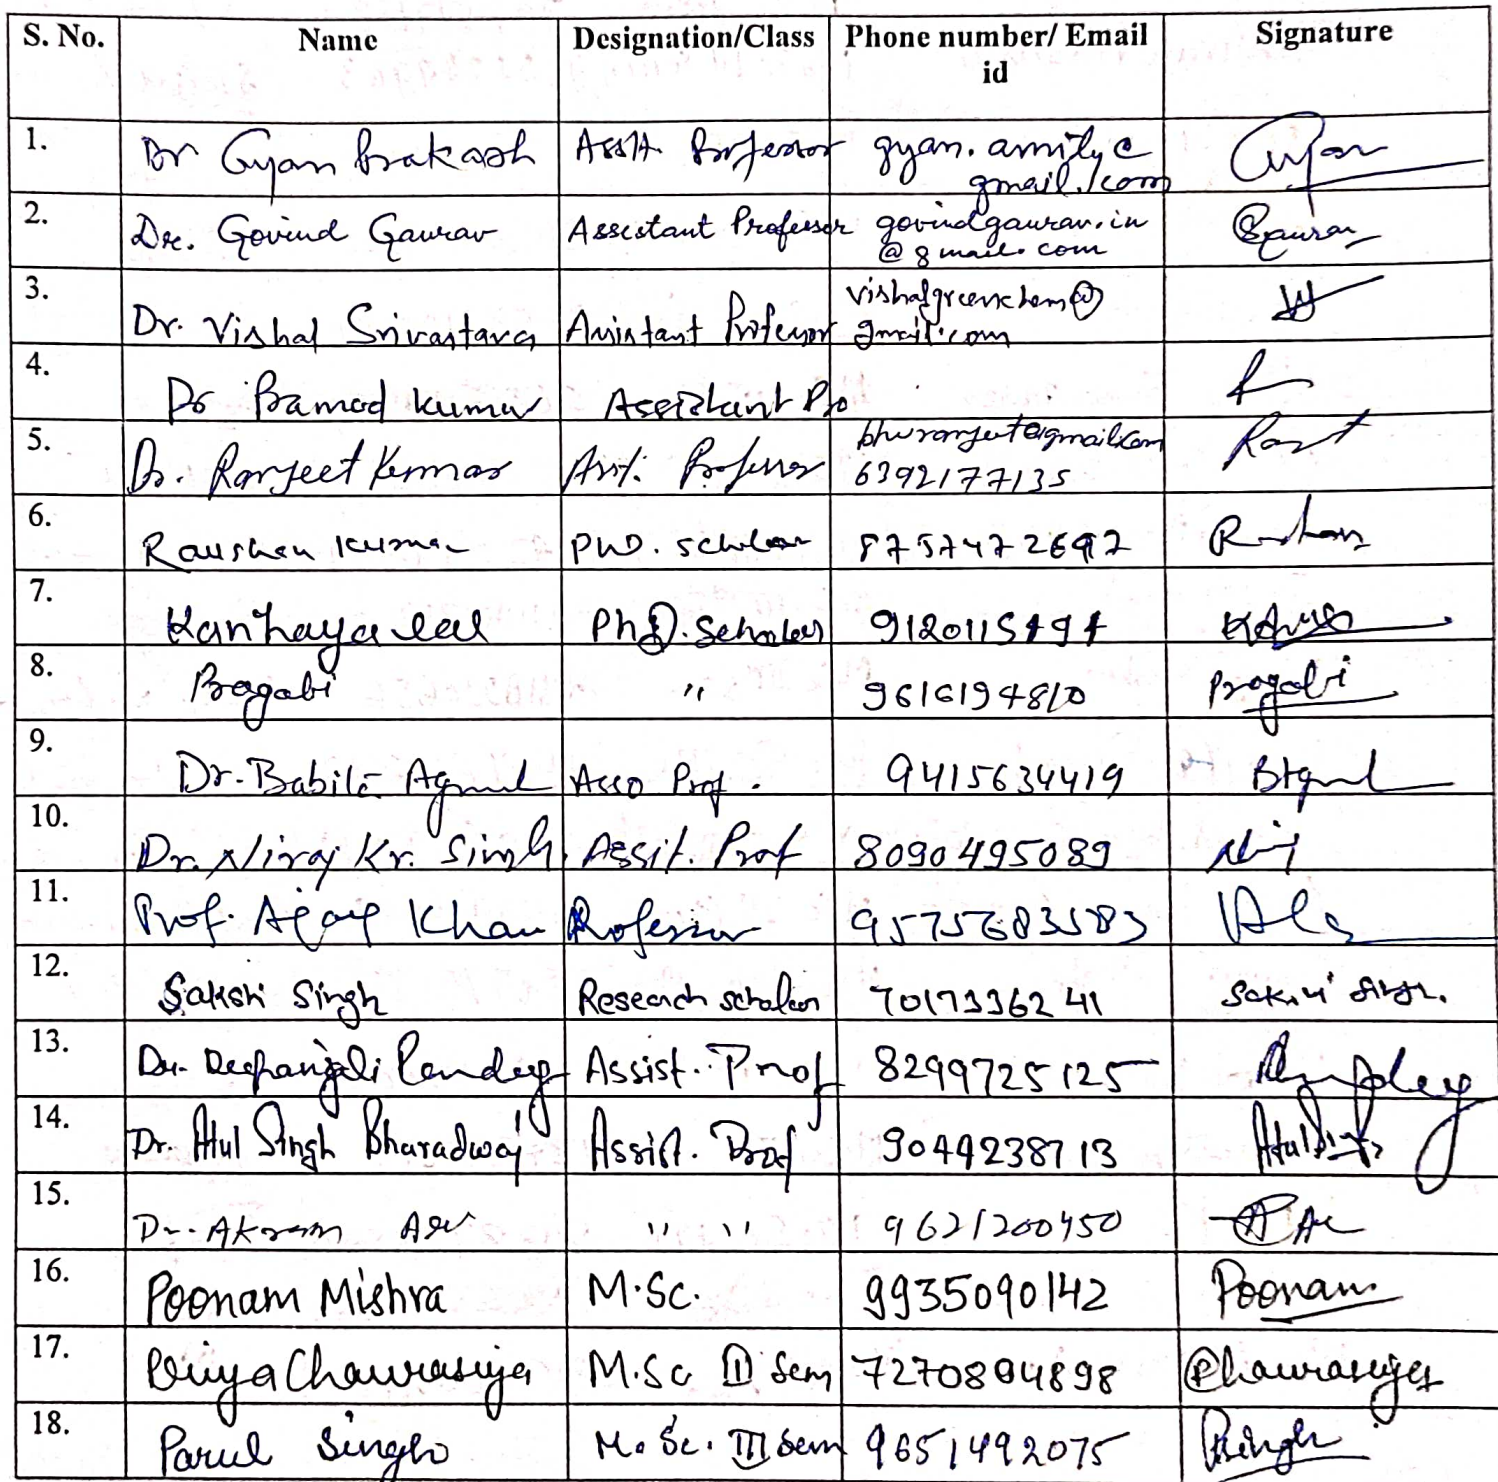 S. No. Name Designation/Class Phone number/ Email id Signature
1. Dr Gyan Prakash Asstt. Professor gyan.amity@gmail.com Gyan
2. Dr. Govind Gaurav Assistant Professor govindgaurav.in@gmail.com Gaurav
3. Dr. Vishal Srivastava Assistant Professor vishalgreenchem@gmail.com
4. Dr Pramod Kumar Assistant Pro
5. Dr. Ranjeet Kumar Asst. Professor bhuranjeet@gmail.com 6392177135
6. Raushan Kumar PhD. Scholar 8757472697
7. Kanhaya lal PhD. Scholar
8. Pragati " 9616194810 Pragati
9. Dr. Babita Agrawal Asso Prof. 9415634419
10. Dr. Niraj Kr. Singh Assit. Prof 8090495089
11. Prof. Khan Professor 9575683583
12. Sakshi Singh Research scholar 7017336241 Sakshi Singh.
13. Dr. Deepanjali Pandey Assist. Prof 8299725125
14. Dr. Atul Singh Bharadwaj Assist. Prof 9044238713
15. Dr. Akram " " 9621200450
16. Poonam Mishra M.Sc. 9935090142 Poonam
17. Priya Chaurasiya M.Sc III Sem 7270894898 PChaurasiya
18. Parul Singh M.Sc. III Sem 9651492075 PSingh